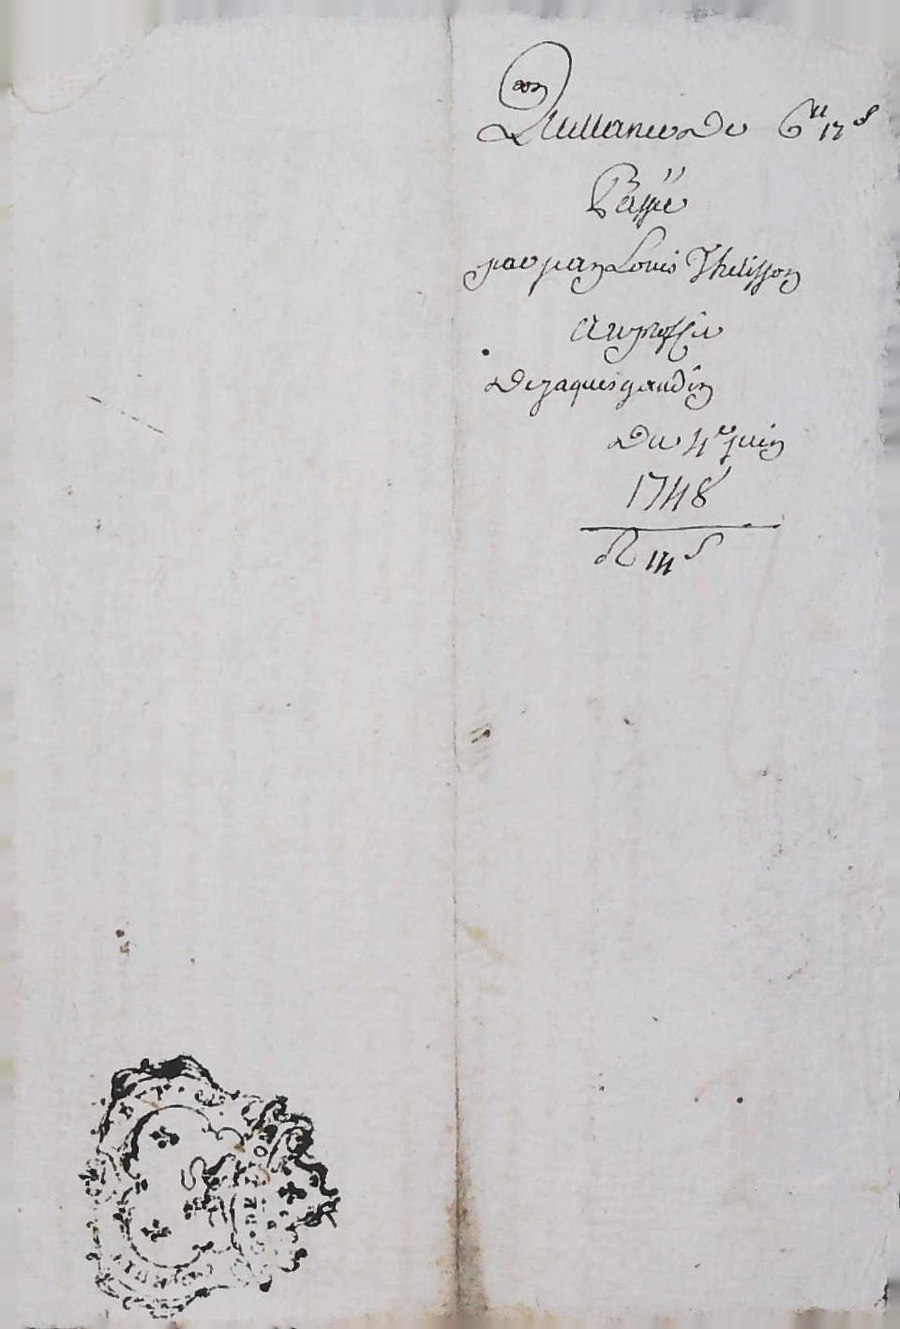 Quittance De 6ᵗᵗ 17ˢ
Passé
par jan Louis Thelisson
Au proffit
De jaques gaudin
Du 4ᵉ juin
1748
R 14ˢ